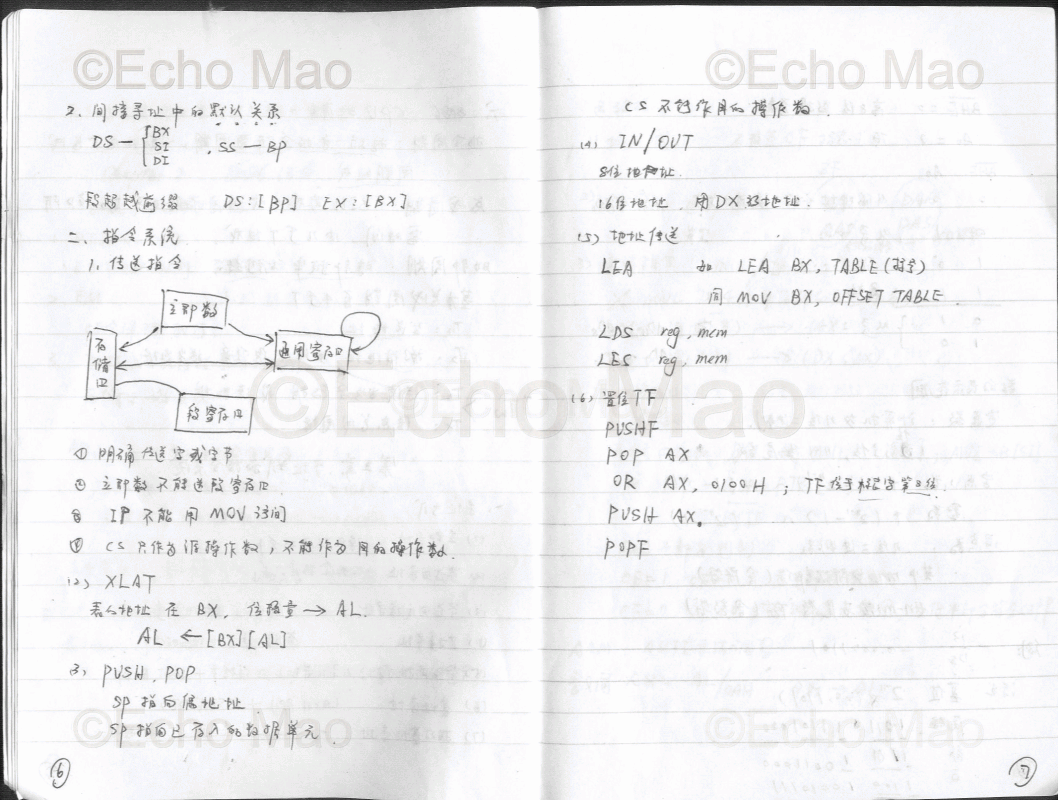 ©Echo Mao
2. 间接寻址中的默认关系
DS — { BX SI DI , SS — BP
段超越前缀 DS:[BP] EX:[BX]
二、指令系统
1. 传送指令
立即数
存储口
通用寄存口
段寄存口
① 明确传送字或字节
② 立即数不能送段寄存口.
③ IP 不能用 MOV 访问
④ CS 只作为源操作数, 不能作为目的操作数.
(2) XLAT
表头地址在 BX, 位移量 → AL.
AL ← [BX][AL]
3) PUSH, POP
SP 指向偶地址
SP 指向已存入的数据单元.
©Echo Mao
⑥
©Echo Mao
CS 不能作目的操作数.
(4) IN/OUT
8位地址.
16位地址, 用DX 地址.
(5) 地址传送
LEA 如 LEA BX, TABLE (符号)
同 MOV BX, OFFSET TABLE.
LDS reg, mem
LES reg, mem
(6) 置位TF
PUSHF
POP AX
OR AX, 0100H ; TF 位于标志字第8位.
PUSH AX.
POPF
©Echo Mao
⑦
©Echo Mao